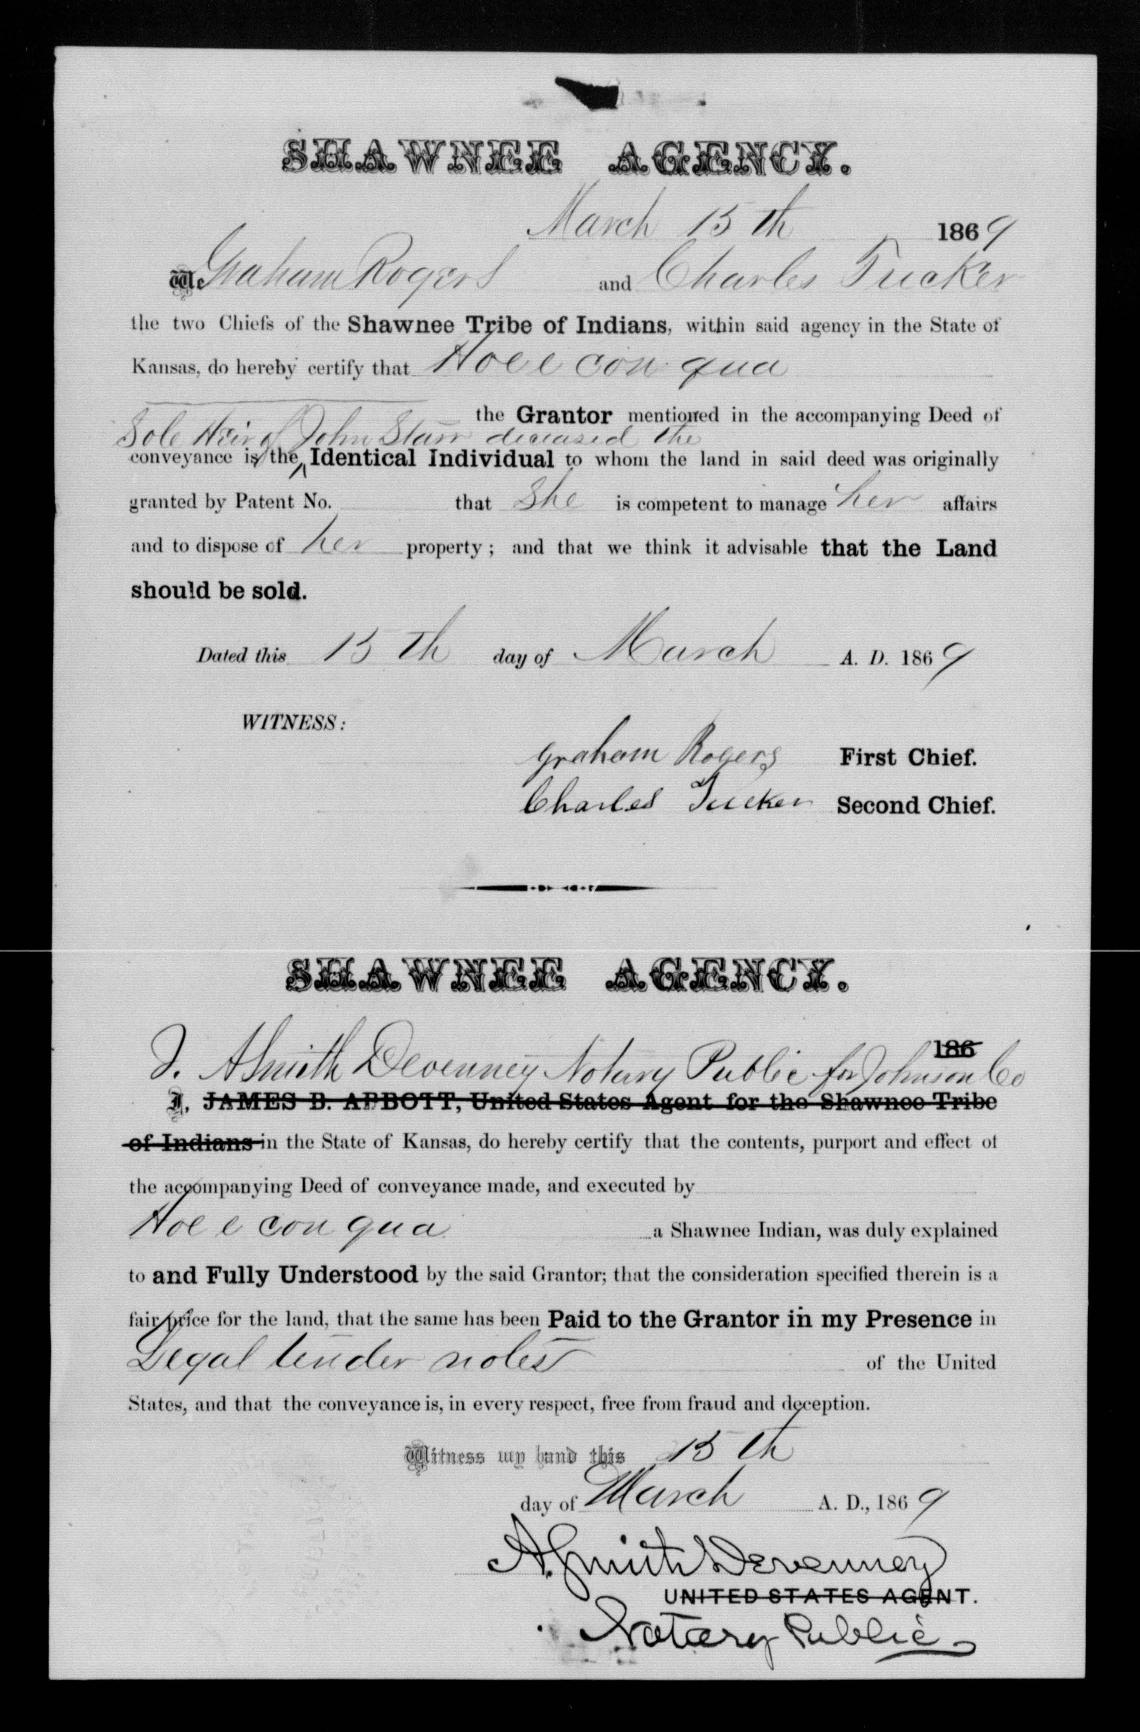 SHAWNEE AGENCY.
March 15th 1869
We Graham Rogers and Charles Tucker
the two Chiefs of the Shawnee Tribe of Indians, within said agency in the State of
Kansas, do hereby certify that Ho e e con qua
the Grantor mentioned in the accompanying Deed of
Sole Heir of John Starr deceased the
conveyance is the Identical Individual to whom the land in said deed was originally
granted by Patent No. that She is competent to manage her affairs
and to dispose of her property; and that we think it advisable that the Land
should be sold.
Dated this 15th day of March A. D. 1869
WITNESS:
Graham Rogers First Chief.
Charles Tucker Second Chief.
SHAWNEE AGENCY.
186
I. A Smith Devenney Notary Public for Johnson Co
I, JAMES B. ABBOTT, United States Agent for the Shawnee Tribe
of Indians in the State of Kansas, do hereby certify that the contents, purport and effect of
the accompanying Deed of conveyance made, and executed by
Ho e e con qua a Shawnee Indian, was duly explained
to and Fully Understood by the said Grantor; that the consideration specified therein is a
fair price for the land, that the same has been Paid to the Grantor in my Presence in
Legal tender notes of the United
States, and that the conveyance is, in every respect, free from fraud and deception.
Witness my hand this 15th
day of March A. D., 1869
A. Smith Devenney
UNITED STATES AGENT.
Notary Public